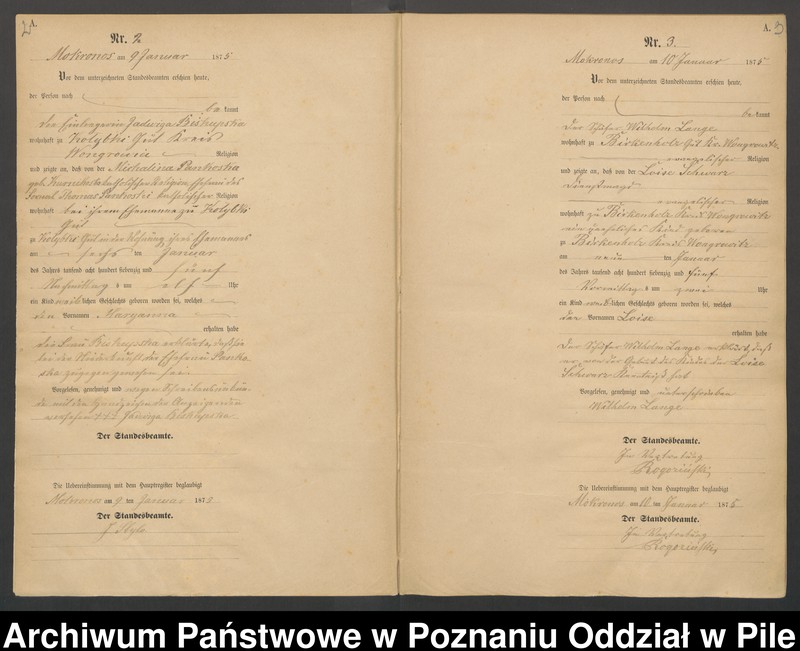 2
A.
Nr. 2
Mokronos am 9 Januar 1875
Vor dem unterzeichneten Standesbeamten erschien heute,
der Person nach
be kannt
die Jadwiga Biskupska
wohnhaft zu Kolybki Gut Kreis
Wongrowitz Religion
und zeigte an, daß von der Michalina Pankoska
geb. katholischer Religion, Ehefrau des
Thomas Pankoski katholischer Religion
wohnhaft bei ihrem Ehemanne zu Kolybki
Gut
zu Kolybki Gut in der Wohnung ihres Ehemannes
am sechs ten Januar
des Jahres tausend acht hundert siebenzig und fünf
Nachmittag s um elf Uhr
ein Kind weiblichen Geschlechts geboren worden sei, welches
den Vornamen Maryanna
erhalten habe
die Frau Biskupska erklärte, daß sie
bei der Niederkunft der Ehefrau Panko
ska zugegen gewesen sei
Vorgelesen, genehmigt und wegen
de mit dem Handzeichen der Anzeigenden
versehen +++ Jadwiga Biskupska
Der Standesbeamte.
Die Uebereinstimmung mit dem Hauptregister beglaubigt
Mokronos am 9 ten Januar 1875
Der Standesbeamte.
A. 3
Nr. 3.
Mokronos am 10 Januar 1875
Vor dem unterzeichneten Standesbeamten erschien heute,
der Person nach
be kannt
Der Schäfer Wilhelm Lange
wohnhaft zu Birkenholz Gut Kr. Wongrowitz
evangelischer Religion
und zeigte an, daß von der Loise Schwarz
Dienstmagd
evangelischer Religion
wohnhaft zu Birkenholz Kreis Wongrowitz
ein Kind geboren
zu Birkenholz Kreis Wongrowitz
am neun ten Januar
des Jahres tausend acht hundert siebenzig und fünf
Vormittag s um zwei Uhr
ein Kind weiblichen Geschlechts geboren worden sei, welches
den Vornamen Loise
erhalten habe
Der Schäfer Wilhelm Lange erklärt, daß
er von der Geburt des Kindes der Loise
Schwarz Kenntniß hat
Vorgelesen, genehmigt und unterschrieben
Wilhelm Lange
Der Standesbeamte.
In Vertretung
Rogoziński
Die Uebereinstimmung mit dem Hauptregister beglaubigt
Mokronos am 10 ten Januar 1875
Der Standesbeamte.
In Vertretung
Rogoziński
Archiwum Państwowe w Poznaniu Oddział w Pile